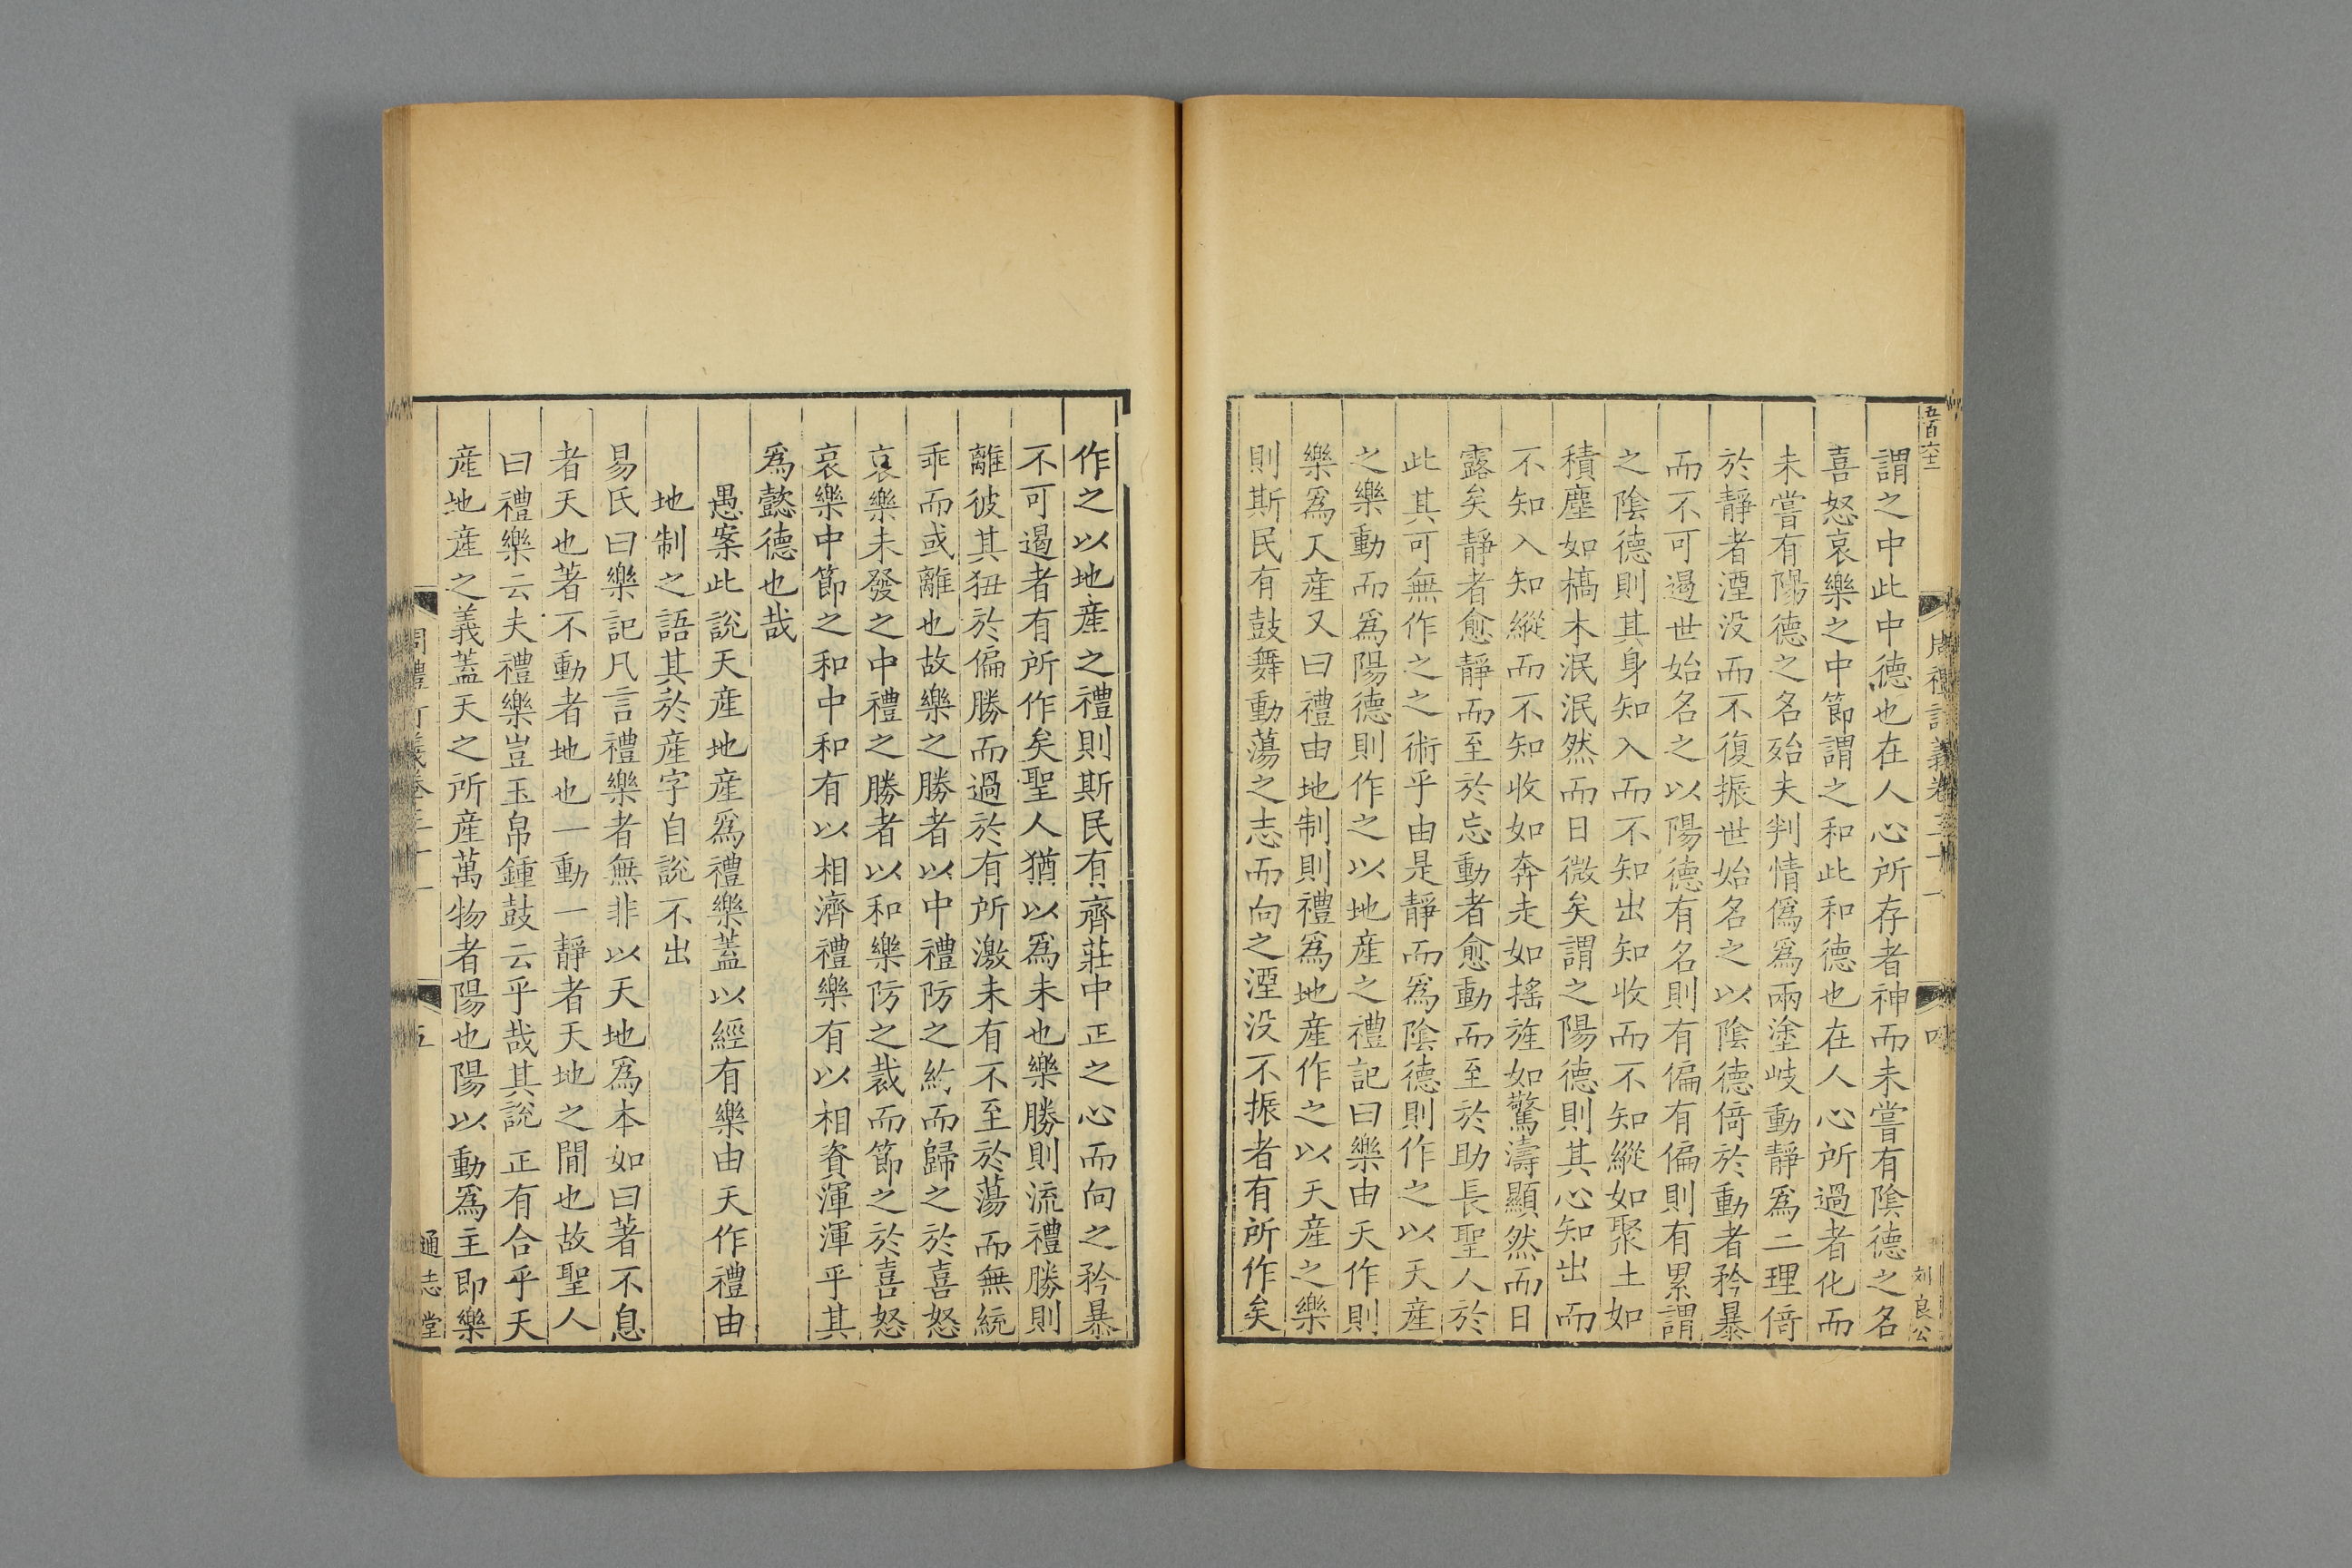 五百六十二
謂之中此中德也在人心所存者神而未嘗有陰德之名
喜怒哀樂之中節謂之和此和德也在人心所過者化而
未嘗有陽德之名殆夫判情僞爲兩塗岐動靜爲二理倚
於靜者湮没而不復振世始名之以陰德倚於動者矜暴
而不可遏世始名之以陽德有名則有偏有偏則有累謂
之陰德則其身知入而不知出知收而不知縱如聚土如
積塵如槁木泯泯然而日微矣謂之陽德則其心知出而
不知入知縱而不知收如奔走如搖旌如驚濤顯然而日
露矣靜者愈靜而至於忘動者愈動而至於助長聖人於
此其可無作之之術乎由是靜而爲陰德則作之以天産
之樂動而爲陽德則作之以地産之禮記曰樂由天作則
樂爲天産又曰禮由地制則禮爲地産作之以天産之樂
則斯民有鼓舞動蕩之志而向之湮没不振者有所作矣
周禮訂義卷三十一
四
刘良公
作之以地産之禮則斯民有齊莊中正之心而向之矜暴
不可遏者有所作矣聖人猶以爲未也樂勝則流禮勝則
離彼其狃於偏勝而過於有所激未有不至於蕩而無統
乖而或離也故樂之勝者以中禮防之約而歸之於喜怒
哀樂未發之中禮之勝者以和樂防之裁而節之於喜怒
哀樂中節之和中和有以相濟禮樂有以相資渾渾乎其
爲懿德也哉
愚案此說天産地産爲禮樂蓋以經有樂由天作禮由
地制之語其於産字自說不出
易氏曰樂記凡言禮樂者無非以天地爲本如曰著不息
者天也著不動者地也一動一靜者天地之間也故聖人
曰禮樂云夫禮樂豈玉帛鍾鼓云乎哉其說正有合乎天
産地産之義蓋天之所産萬物者陽也陽以動爲主即樂
周禮訂義卷三十一
五
通志堂